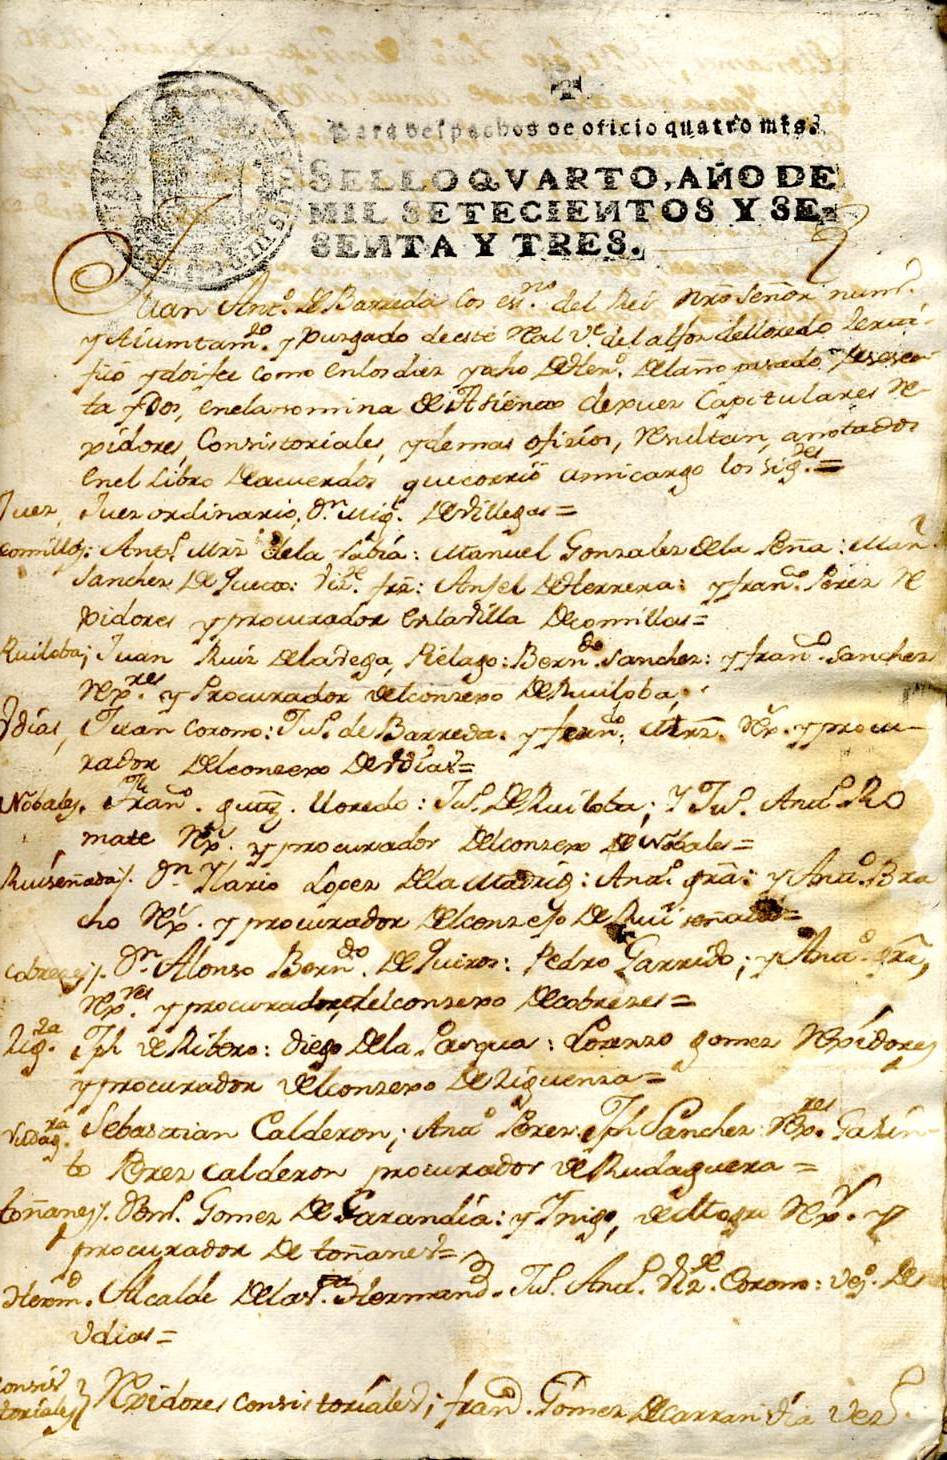 Para despachos de oficio quatro mrs.
SELLO QVARTO, AÑO DE
MIL SETECIENTOS Y SE-
SENTA Y TRES.
Juan Anto. De Barreda Cos essno. del Rei Nro Señor num.
y Aiuntamto. y Juzgado de este Real Ve. del alfoz de lloredo Zerti-
fico y doi fee como en los diez y ocho De Heno. Del año pasado De sesen
ta y Dos, en la nomina De Asientos de Juez Capitulares Re-
xidores, Consistoriales, y demas oficios, Resultan anotados
En el Libro De acuerdos que corrio a mi cargo los sigtes.=
Juez, Juez ordinario, Dn. Migl. De Villegas=
Comillas: Anto. Mrz de la Rabia: Manuel Gonzalez De la Peña: Manl
Sanchez De Cueto: Vizte. frz: Anjel De Herrera: y franco. Perez Re
xidores y procurador en la Villa De Comillas=
Ruiloba; Juan Ruiz De la Vega, Pielago: Berndo. Sanchez: y franco. Sanchez
Rexres. y Procurador del conzexo De Ruiloba,
Vdias, Juan Corono: Jul. de Barreda. y ferndo. Mrz. Rex. y procu-
rador Del conzexo De Vdias=
Nobales. Franco. Lloredo: Jul. De Ruiloba; Y Jul. Anto. Ro
mate Rex. y procurador Del conzexo De Nobales=
Ruiseñada. Dn Ylario Lopez De la Madrid: Anto. Gra: y Anto. Bra
cho Rex. y procurador Del conzejo De Rui señada=
Cobreces. Dn. Alonso Berndo. De Quiros: Pedro Garrido; y Anto. Gra,
Rexres. y procurador del conzexo De Cobrezes=
Zigza. Jph de Ribero: Diego De la Pasqua: Lorenzo gomez Rexidores
y procurador del conzexo De Ziguenza=
Rudagra. Sebastian Calderon; Anto. Perez: Jph Sanchez Rexres. Gazin-
to Perez Calderon procurador de Rudaguera=
toñanes. Gomez De Carandia: y Ynigo, Rex. y
procurador De toñanes=
Hermd. Alcalde De la Sta. Hermand. Jul. Anto. Corono: Vezo. De
Vdias=
Consis
toriales} Rexidores consistoriales; franco. Gomez De carran dia Vezo.